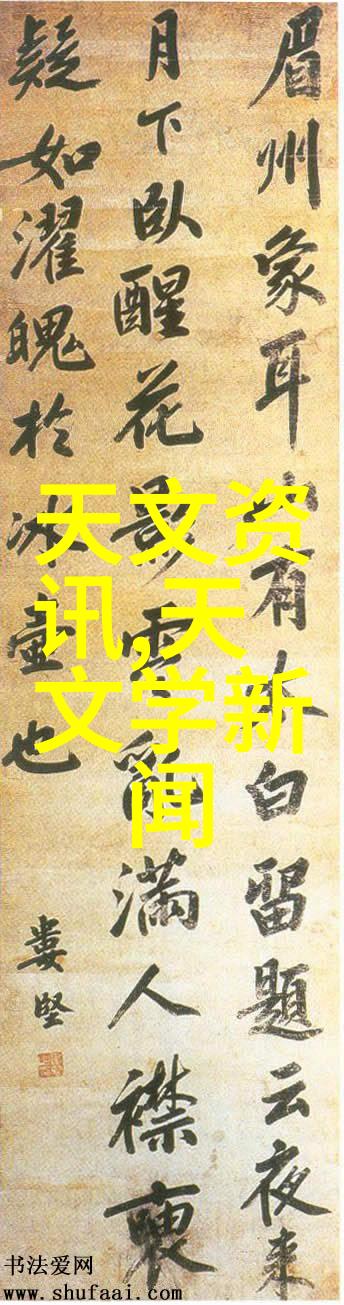 眉州象耳山有李白留題云夜來
月下臥醒花影零亂滿人襟
疑如濯魄於冰壺也
婁堅
天文资
讯,天
文学新
闻
书法爱网
www.shufaai.com